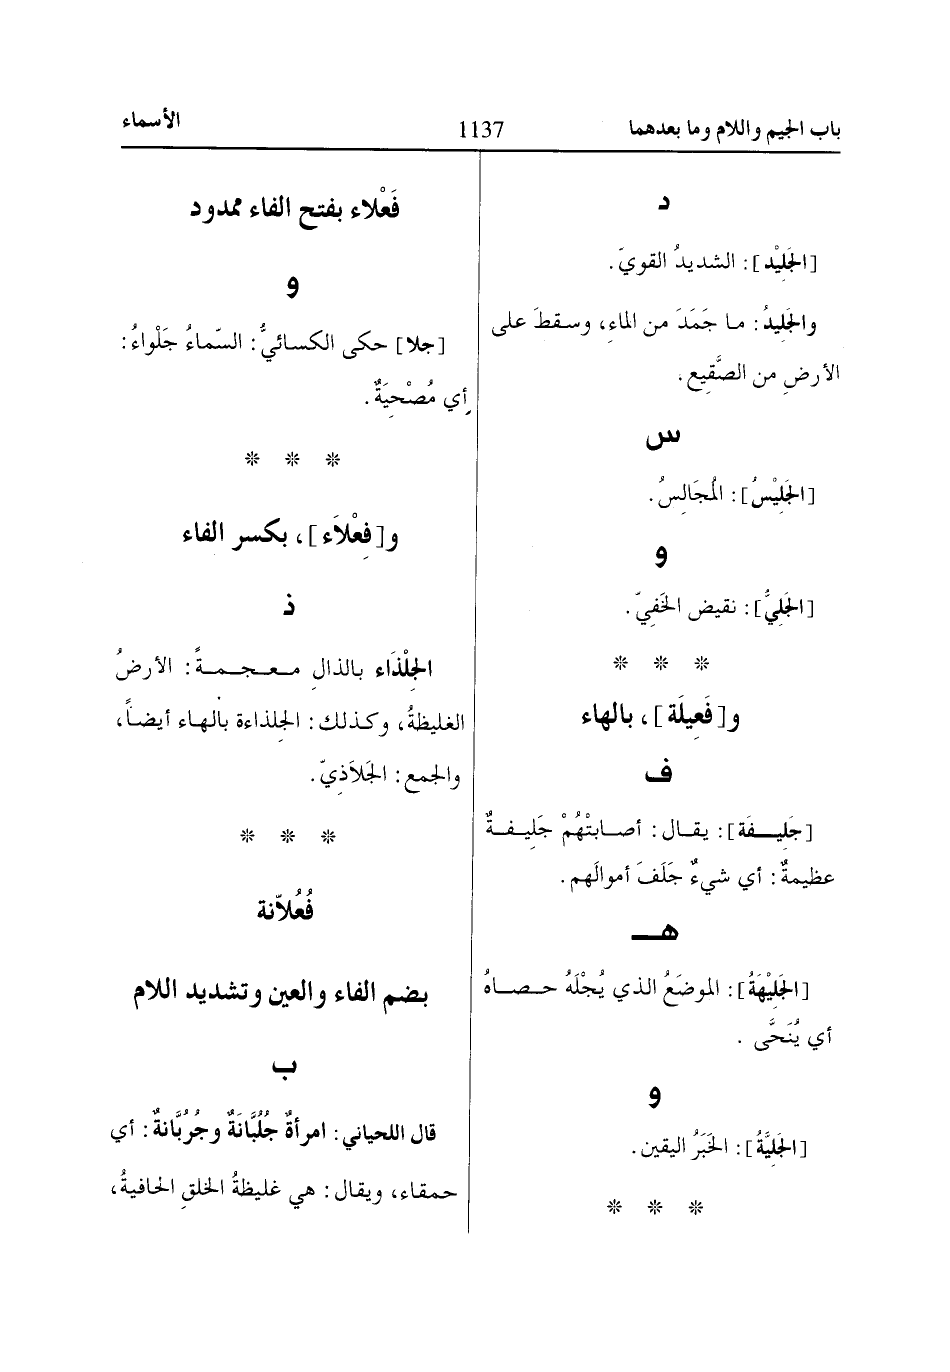 باب الجيم واللام وما بعدهما
1137
الأسماء
د
[الجَلِيْد]: الشديدُ القويّ.
والجَلِيدُ: ما جَمَدَ من الماءِ، وسقطَ على
الأرضِ من الصَّقِيع.
س
[الجَلِيْسُ]: المُجَالِسُ.
و
[الجَلِيُّ]: نقيض الخَفِيّ.
* * *
و[فَعِيلَة]، بالهاء
ف
[جَلِيفَة]: يقال: أصابتْهُمْ جَلِيفةٌ
عظيمةٌ: أي شيءٌ جَلَفَ أموالَهم.
هـ
[الجَلِيْهَةُ]: الموضَعُ الذي يُجْلَهُ حصاهُ
أي يُنَحَّى .
و
[الجَلِيَّةُ]: الخَبَرُ اليقين.
* * *
فَعْلاء بفتح الفاء ممدود
و
[جلا] حكى الكسائيُّ: السّماءُ جَلْواءُ:
أي مُصْحِيَةٌ.
* * *
و[فِعْلاَء]، بكسر الفاء
ذ
الجِلْذَاء بالذالِ معجمةً: الأرضُ
الغليظةُ، وكذلك: الجلذاءة بالهاء أيضاً،
والجمع: الجَلاَذِيّ.
* * *
فُعُلاّنة
بضم الفاء والعين وتشديد اللام
ب
قال اللحياني: امرأةٌ جُلُبَّانَةٌ وجُرُبَّانةٌ: أي
حمقاء، ويقال: هي غليظةُ الخلقِ الجافيةُ،